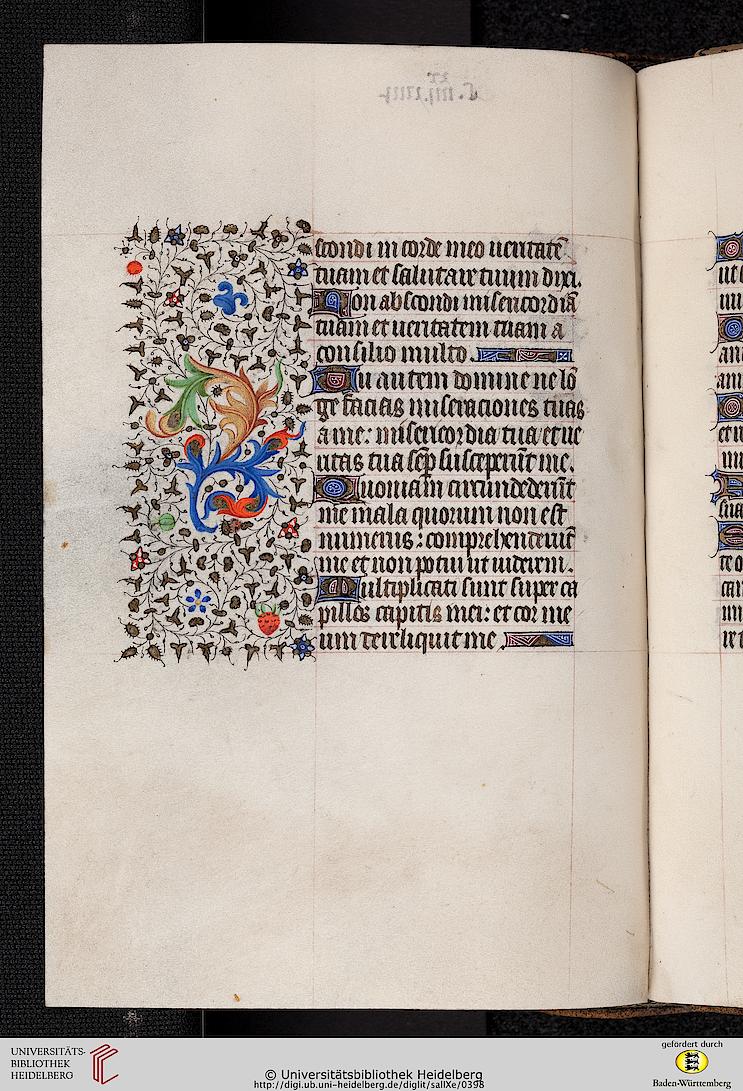 scondi in corde meo ueritatē
tuam et salutare tuum dixi.
Non abscondi misericordiā
tuam et ueritatem tuam a
consilio multo.
Tu autem domine ne lō
ge facias miseraciones tuas
a me: misericordia tua et ue
ritas tua sēp susceperūt me.
Quoniam circumdederūt
me mala quorum non est
numerus: comprehenderūt
me et non potui ut viderem.
Multiplicati sunt super ca
pillos capitis mei: et cor me
um dereliquit me.
UNIVERSITÄTS-
BIBLIOTHEK
HEIDELBERG
© Universitätsbibliothek Heidelberg
http://digi.ub.uni-heidelberg.de/diglit/sallXe/0398
gefördert durch
Baden-Württemberg